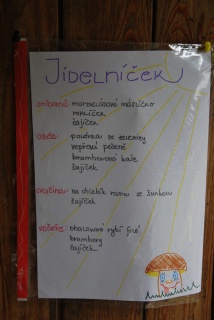 Jídelníček
snídaně: marmeládové máslíčko
rohlíček
čajíček
oběd: polévka ze zeleniny
vepřová pečeně
bramborová kaše
čajíček
svačina: na chlebík romu se šunkou
čajíček
večeře: obalované rybí filé
brambory
čajíček